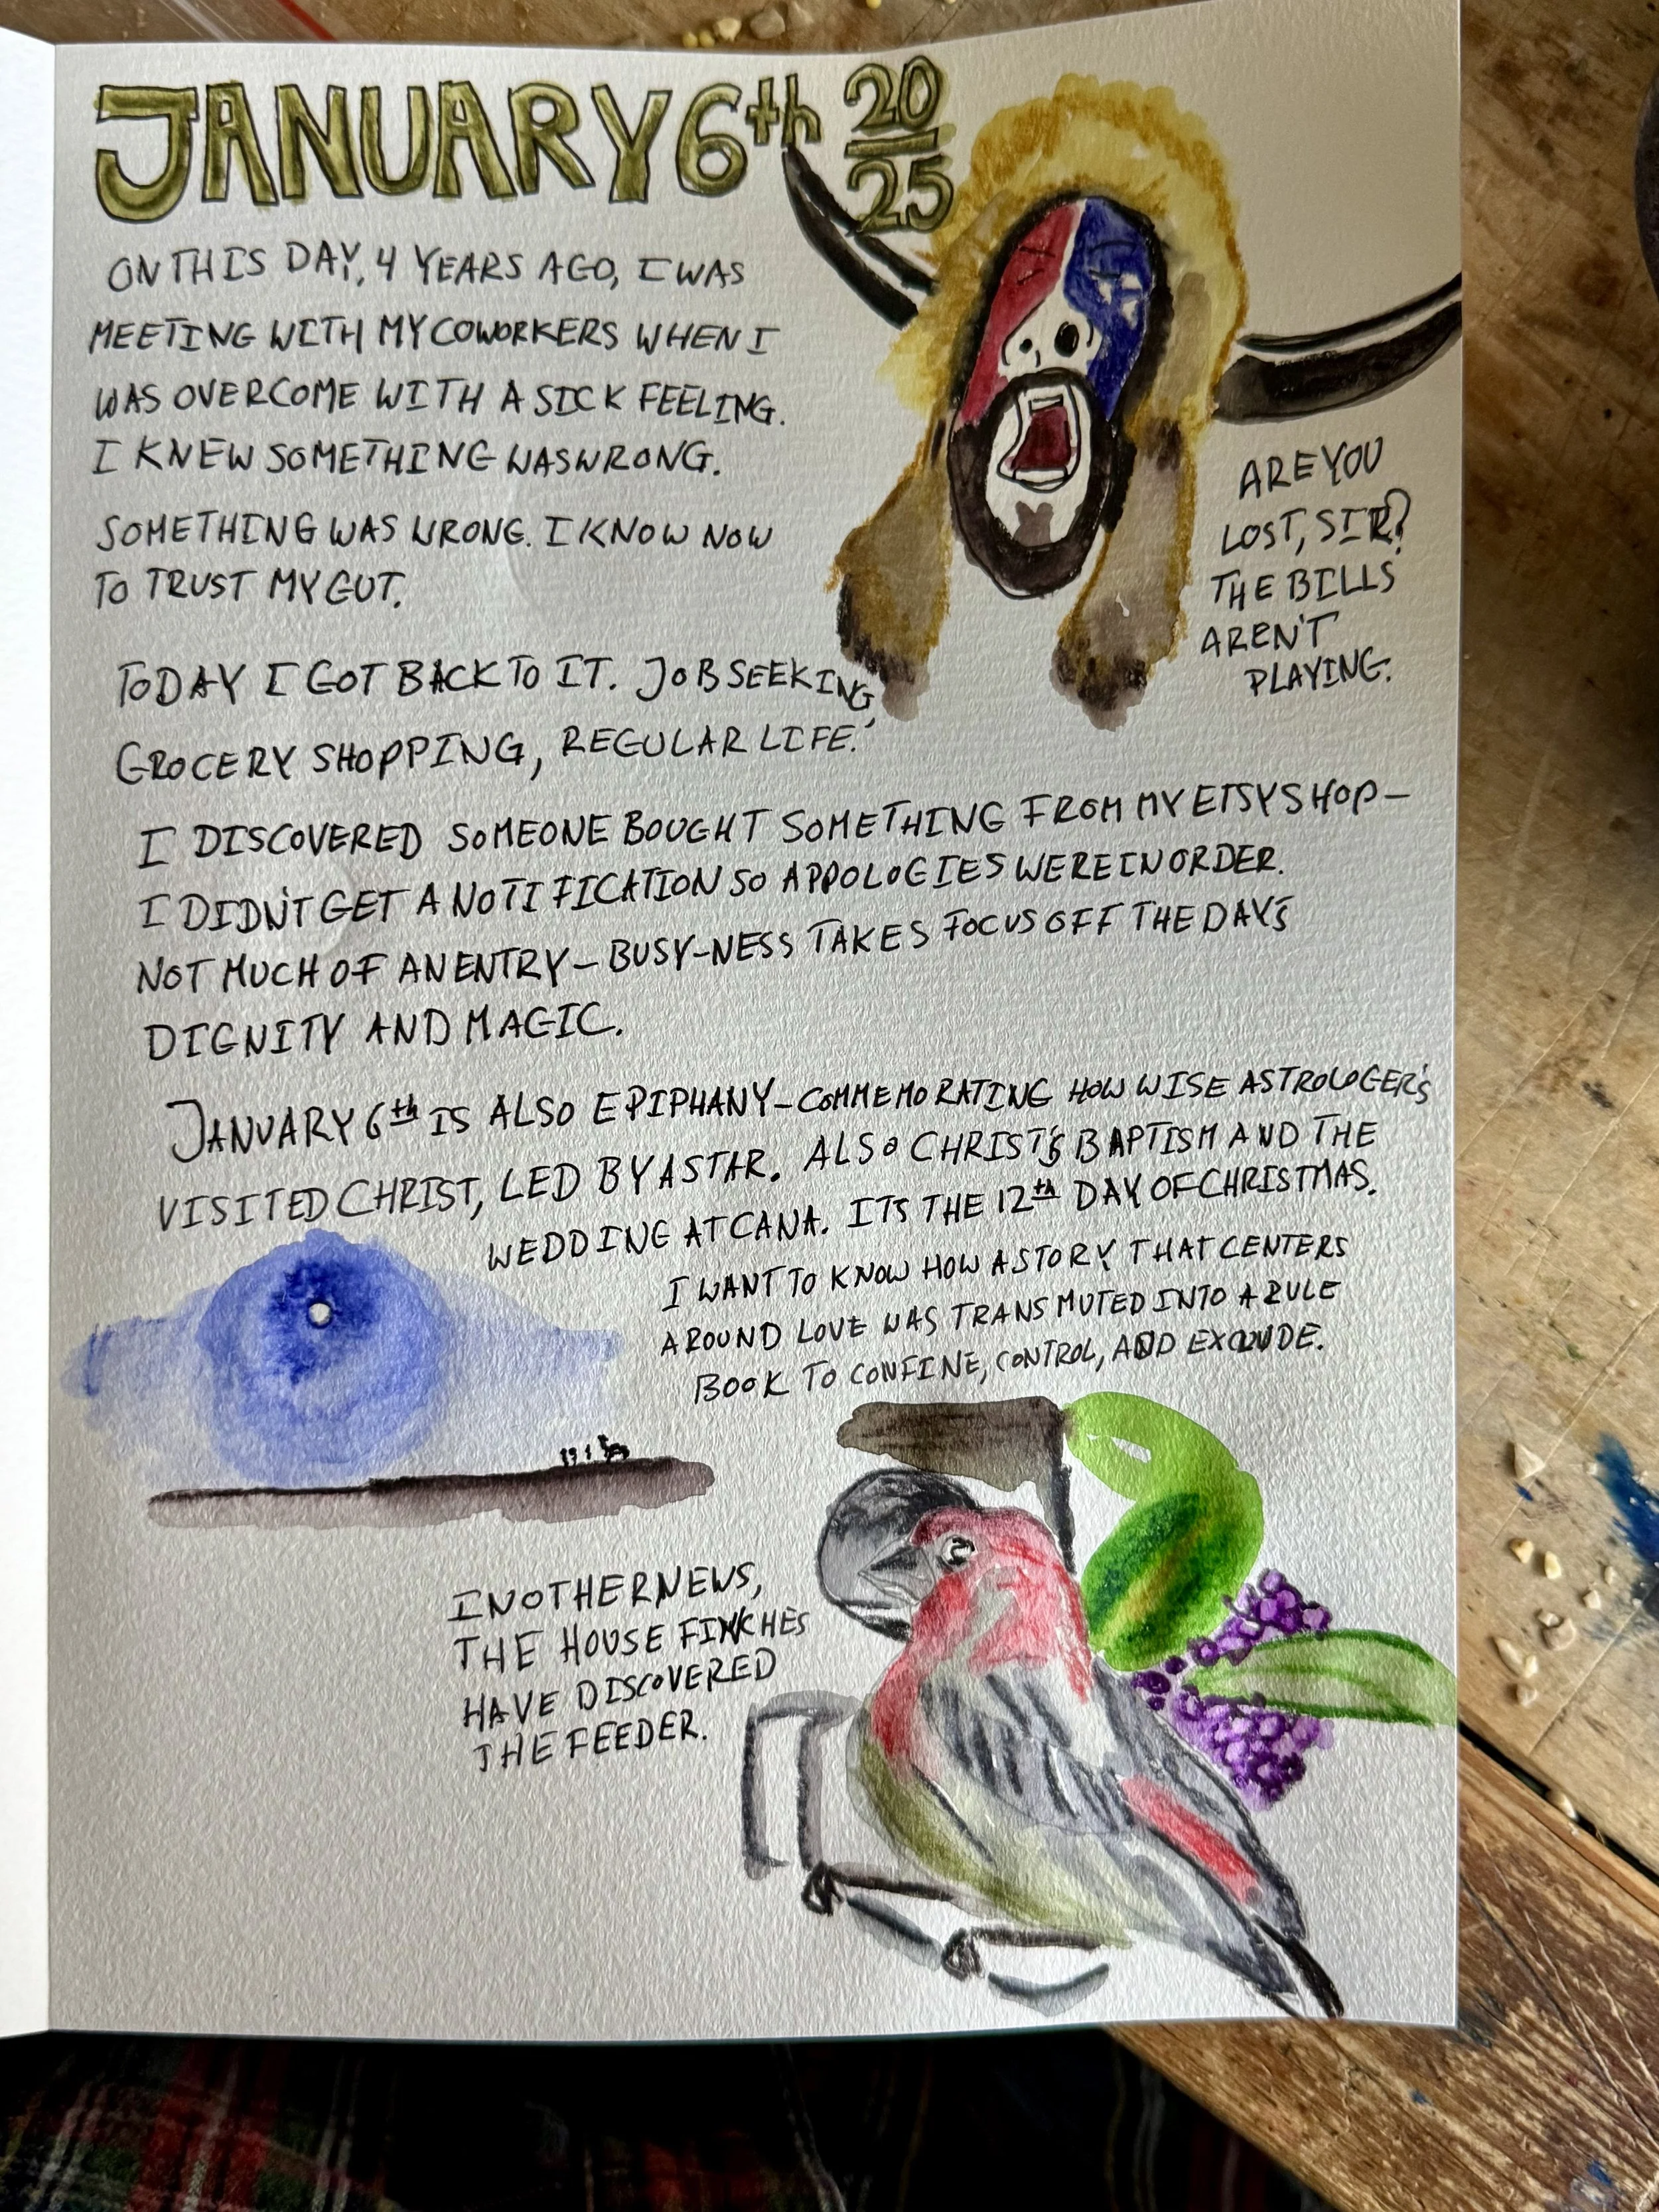 JANUARY 6th 20/25
ON THIS DAY, 4 YEARS AGO, I WAS
MEETING WITH MY COWORKERS WHEN I
WAS OVERCOME WITH A SICK FEELING.
I KNEW SOMETHING WAS WRONG.
SOMETHING WAS WRONG. I KNOW NOW
TO TRUST MY GUT.
ARE YOU
LOST, SIR?
THE BILLS
AREN'T
PLAYING.
TODAY I GOT BACK TO IT. JOB SEEKING,
GROCERY SHOPPING, REGULAR LIFE.
I DISCOVERED SOMEONE BOUGHT SOMETHING FROM MY ETSY SHOP–
I DIDN'T GET A NOTIFICATION SO APPOLOGIES WERE IN ORDER.
NOT MUCH OF AN ENTRY – BUSY-NESS TAKES FOCUS OFF THE DAY'S
DIGNITY AND MAGIC.
JANUARY 6th IS ALSO EPIPHANY – COMMEMORATING HOW WISE ASTROLOGER'S
VISITED CHRIST, LED BY A STAR. ALSO CHRIST'S BAPTISM AND THE
WEDDING AT CANA. IT'S THE 12th DAY OF CHRISTMAS.
I WANT TO KNOW HOW A STORY THAT CENTERS
AROUND LOVE WAS TRANSMUTED INTO A RULE
BOOK TO CONFINE, CONTROL, AND EXCLUDE.
IN OTHER NEWS,
THE HOUSE FINCHES
HAVE DISCOVERED
THE FEEDER.